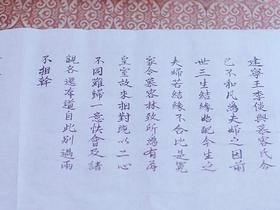 建寧王李倓與慕容氏今
已不和凡為夫婦之因前
世三生結緣始配今生之
夫婦若結緣不合比是冤
家今慕容林致所為有辱
皇室故來相對既以二心
不同難歸一意快會及諸
親各還本道自此別過兩
不相幹